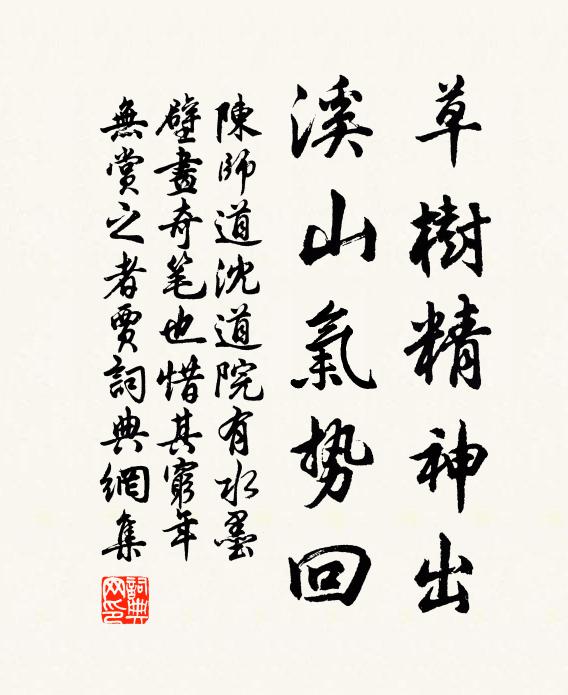 草樹精神出
溪山氣势回
陳師道沈道院有水墨
壁畫奇笔也惜其窮年
無賞之者賈詞典網集
詞典
网印